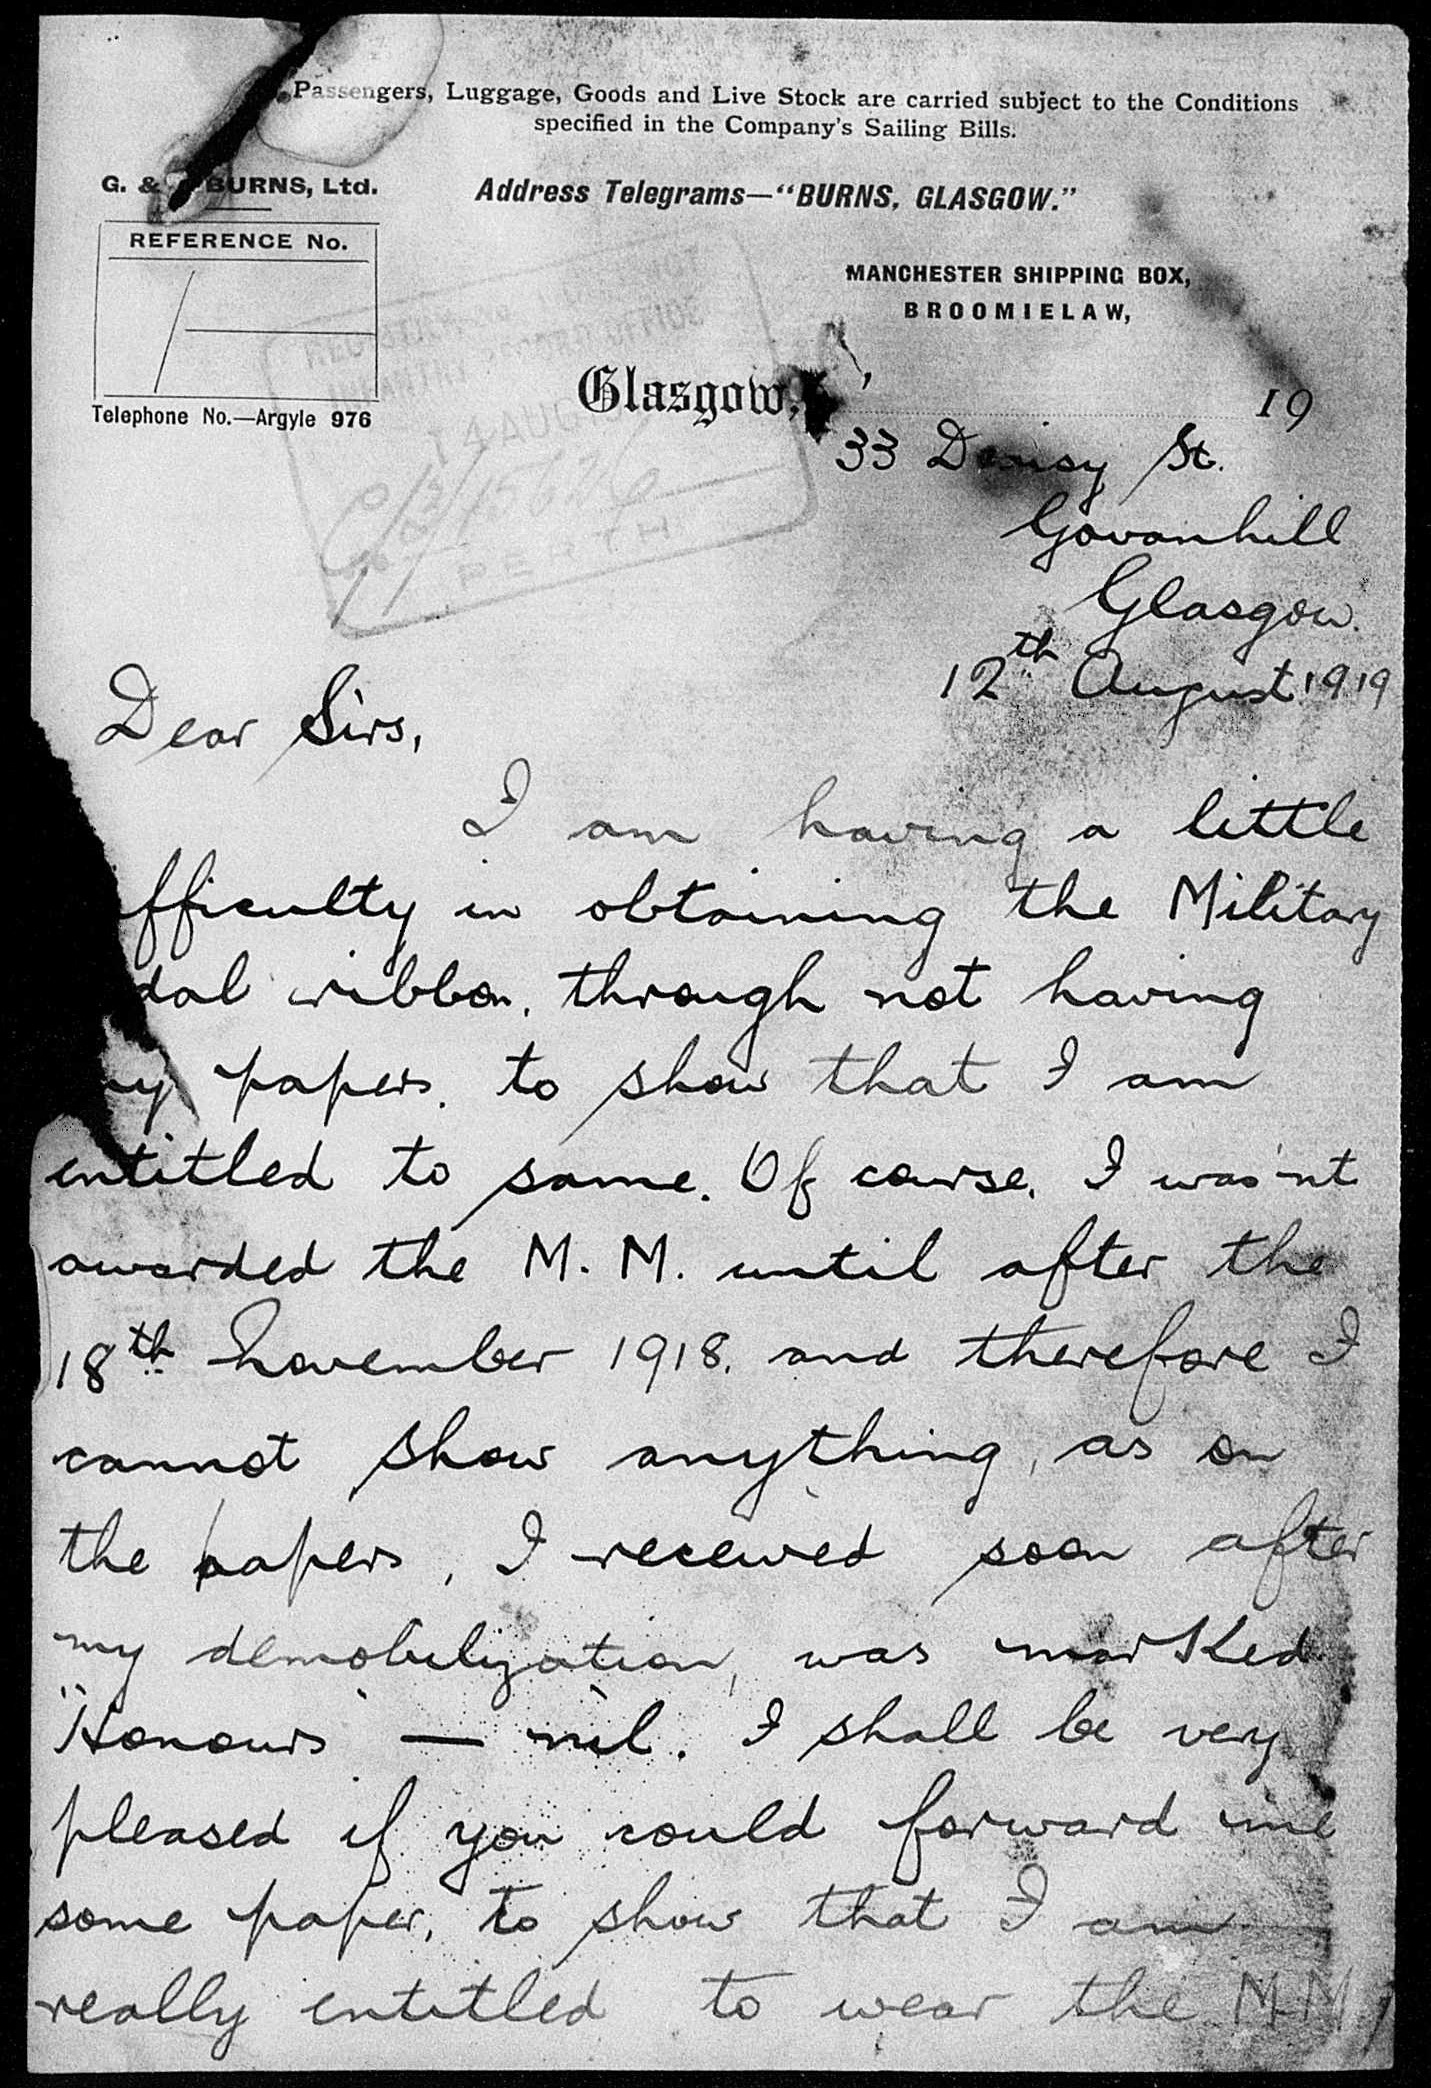 Passengers, Luggage, Goods and Live Stock are carried subject to the Conditions
specified in the Company's Sailing Bills.
G. & BURNS, Ltd.
Address Telegrams—"BURNS, GLASGOW."
REFERENCE No.
MANCHESTER SHIPPING BOX,
BROOMIELAW,
Glasgow, 19
Telephone No.—Argyle 976
INFANTRY RECORD OFFICE
14 AUG
PERTH
33 St.
Govanhill
Glasgow.
12th August 1919
Dear Sirs,
I am having a little
fficulty in obtaining the Military
dal ribbon, through not having
ny papers. to show that I am
entitled to same. Of course, I was'nt
awarded the M. M. until after the
18th November 1918, and therefore I
cannot show anything, as on
the papers, I received soon after
my demobilization, was marked
"Honours — nil. I shall be very
pleased if you could forward me
some paper, to show that I am
really entitled to wear the M.M.